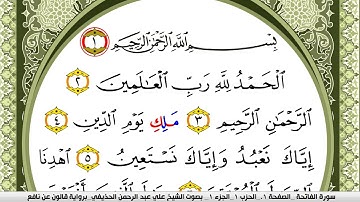 بِسْمِ اللَّهِ الرَّحْمَٰنِ الرَّحِيمِ ١
الْحَمْدُ لِلَّهِ رَبِّ الْعَالَمِينَ ٢
الرَّحْمَٰنِ الرَّحِيمِ ٣ مَلِكِ يَوْمِ الدِّينِ ٤
إِيَّاكَ نَعْبُدُ وَإِيَّاكَ نَسْتَعِينُ ٥ اهْدِنَا
سورة الفاتحة _ الصفحة 1. الحزب 1_ الجزء 1_ بصوت الشيخ علي عبد الرحمن الحذيفي_ برواية قالون عن نافع